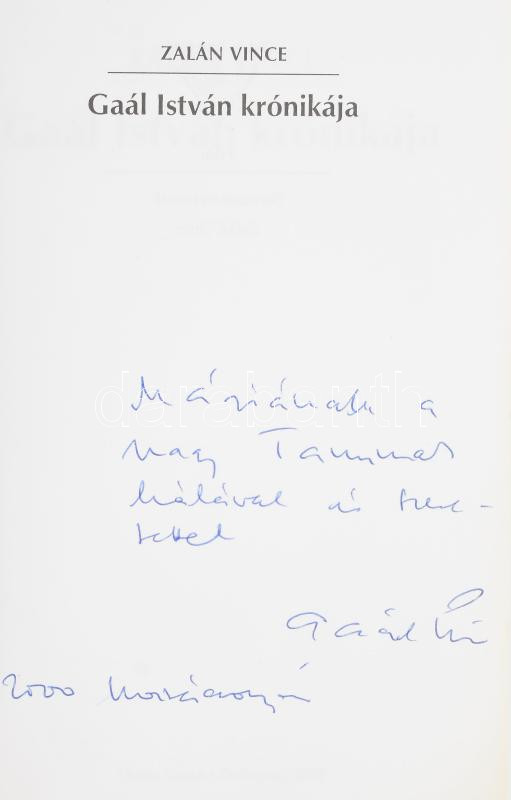 ZALÁN VINCE
Gaál István krónikája
Máriának a
nagy
hálával és szere-
tettel
Gaál
2000 Karácsonyán
darabanth